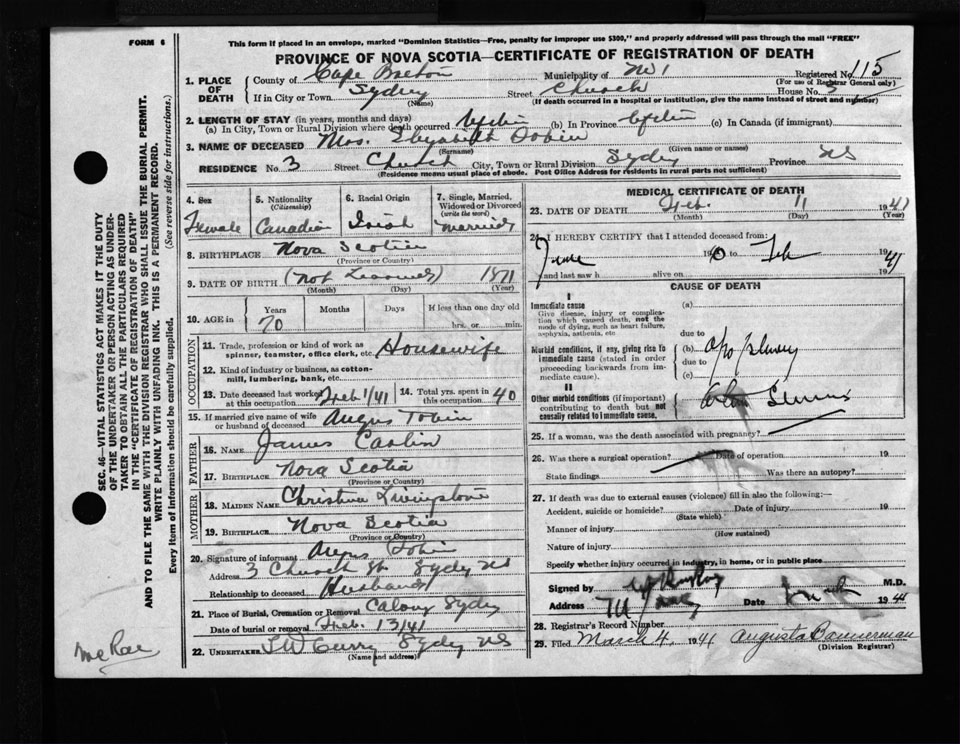 FORM 6
This form if placed in an envelope, marked "Dominion Statistics—Free, penalty for improper use $300," and properly addressed will pass through the mail "FREE"
PROVINCE OF NOVA SCOTIA—CERTIFICATE OF REGISTRATION OF DEATH
1. PLACE OF DEATH County of Cape Breton Municipality of No 1 Registered No. 115
(For use of Registrar General only)
If in City or Town Sydney Street Church House No. 3
(Name) (If death occurred in a hospital or institution, give the name instead of street and number)
2. LENGTH OF STAY (in years, months and days)
(a) In City, Town or Rural Division where death occurred (b) In Province (c) In Canada (if immigrant)
3. NAME OF DECEASED Mrs. Elizabeth Tobin
(Surname) (Given name or names)
RESIDENCE No. 3 Street Church City, Town or Rural Division Sydney Province NS
(Residence means usual place of abode. Post Office Address for residents in rural parts not sufficient)
4. Sex Female
5. Nationality (Citizenship) Canadian
6. Racial Origin Irish
7. Single, Married, Widowed or Divorced (write the word) married
8. BIRTHPLACE Nova Scotia
(Province or Country)
9. DATE OF BIRTH (Not Learned) 1871
(Month) (Day) (Year)
10. AGE in Years 70 Months Days If less than one day old hrs. or min.
OCCUPATION
11. Trade, profession or kind of work as spinner, teamster, office clerk, etc. Housewife
12. Kind of industry or business, as cotton-mill, lumbering, bank, etc.
13. Date deceased last worked at this occupation Feb 1/41 14. Total yrs. spent in this occupation 40
15. If married give name of wife or husband of deceased Angus Tobin
FATHER
16. NAME James Carlin
17. BIRTHPLACE Nova Scotia
MOTHER
18. MAIDEN NAME Christina Livingstone
19. BIRTHPLACE Nova Scotia
(Province or Country)
20. Signature of informant Angus Tobin
Address 3 Church St Sydney NS
Relationship to deceased Husband
21. Place of Burial, Cremation or Removal Calvary Sydney
Date of burial or removal Feb. 13/41
22. UNDERTAKER TW Curry Sydney NS
(Name and address)
MEDICAL CERTIFICATE OF DEATH
23. DATE OF DEATH Feb. 11 1941
(Month) (Day) (Year)
24. I HEREBY CERTIFY that I attended deceased from:
June 1940 to Feb 1941
and last saw h alive on 19
CAUSE OF DEATH
I
Immediate cause (a)
Give disease, injury or complication which caused death, not the mode of dying, such as heart failure, asphyxia, asthenia, etc
due to
Morbid conditions, if any, giving rise to immediate cause (stated in order proceeding backwards from immediate cause). (b)
due to
(c)
II
Other morbid conditions (if important) contributing to death but not causally related to immediate cause.
25. If a woman, was the death associated with pregnancy?
26. Was there a surgical operation? Date of operation 19
State findings Was there an autopsy?
27. If death was due to external causes (violence) fill in also the following:—
Accident, suicide or homicide? Date of injury 19
(State which)
Manner of injury
(How sustained)
Nature of injury
Specify whether injury occurred in industry, in home, or in public place
Signed by M.D.
Address Date 1941
28. Registrar's Record Number
29. Filed March 4, 1941 Augusta Bannerman
(Division Registrar)
SEC. 46—VITAL STATISTICS ACT MAKES IT THE DUTY
OF THE UNDERTAKER OR PERSON ACTING AS UNDER-
TAKER TO OBTAIN ALL THE PARTICULARS REQUIRED
IN THE "CERTIFICATE OF REGISTRATION OF DEATH"
AND TO FILE THE SAME WITH THE DIVISION REGISTRAR WHO SHALL ISSUE THE BURIAL PERMIT.
WRITE PLAINLY WITH UNFADING INK. THIS IS A PERMANENT RECORD.
Every item of information should be carefully supplied. (See reverse side for instructions.)
McRae